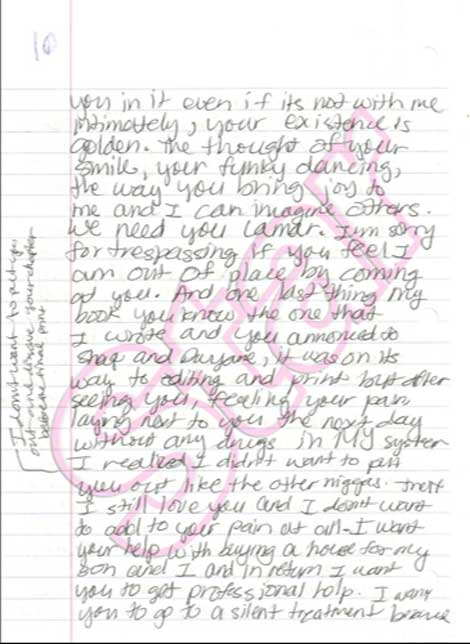 10
you in it even if its not with me
intimately, your existence is
golden. the thought of your
smile, your funky dancing,
the way you bring joy to
me and I can imagine others.
We need you Lamar. I'm sorry
for trespassing if you feel I
am out of place by coming
at you. And one last thing my
book you know the one that
I wrote and you annonced to
Shaq and Dwyane, it was on its
way to editing and print but after
seeing you, feeling your pain
laying next to you the next day
without any drugs in MY system
I realized I didn't want to put
you out like the other niggas.
I still love you and I don't want
to add to your pain at all. I want
your help with buying a house for my
son and I and in return I want
you to get professional help. I want
you to go to a silent treatment because
I don't want to put you
out and your chapter
before final print
Star